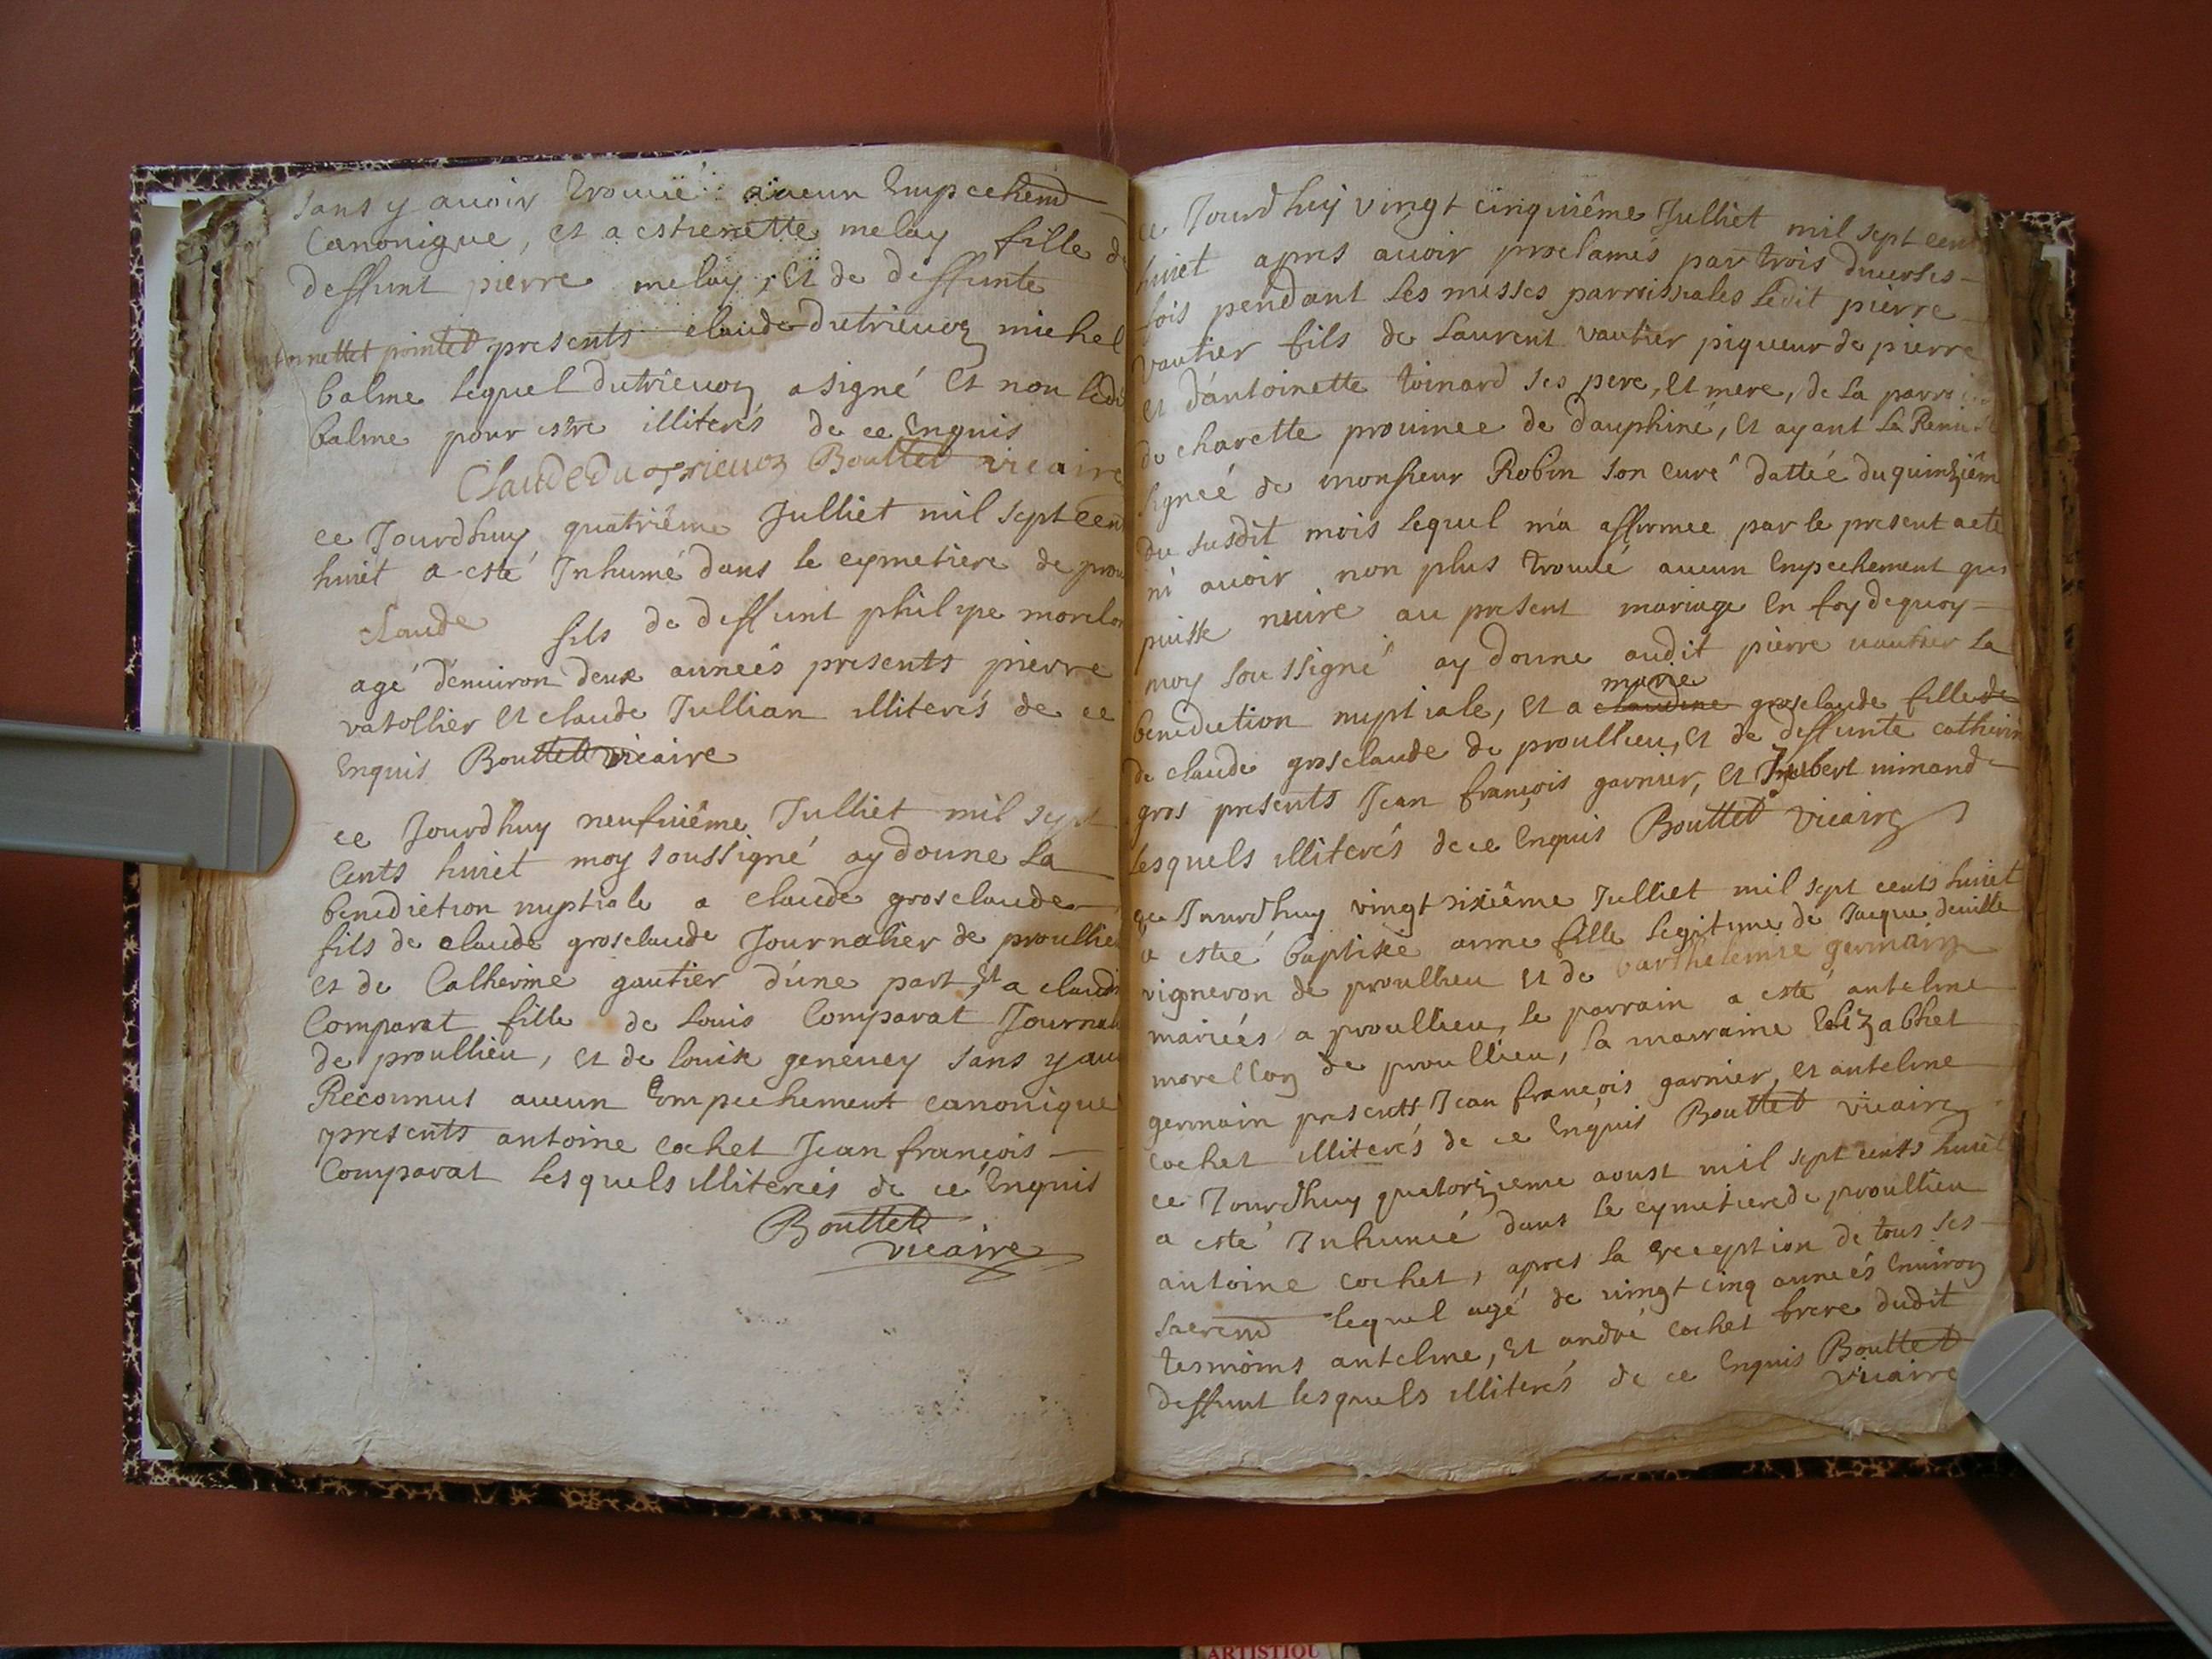 sans y avoir trouué aucun Empechemd
Canonique, et a estienette melay fille de
deffunt pierre melay, et de deffunte
pointet presents claude dutrieuoz michel
balme lequel dutrieuoz a signé et non ledi
balme pour estre illiterés de ce Enquis
Claude Dutrieuoz Bouttet vicaire
ce Jourdhuy quatriême Julliet mil sept cent
huiet a esté Inhumé dans le cymetiere de prou
claude fils de deffunt philipe morelon
agé d'enuiron deux anneés presents pierre
vatollier et claude Jullian illiterés de ce
Enquis Bouttet vicaire
ce Jourdhuy neufuiême Julliet mil sept
Cents huiet moy soussigné ay donne la
benediction nuptiale a claude grosclaude
fils de claude grosclaude Journalier de proullieu
et de Catherine gautier d'une part, et a claudi
Comparat fille de Louis Comparat Journali
de proullieu, et de louise geneuey sans y auo
Reconnus aucun Empechement canonique
presents antoine cochet Jean françois
Comparat lesquels illiterés de ce Enquis
Bouttet
vicaire
ce Jourdhuy vingt cinquiême Julliet mil sept cent
huiet apres auoir proclamés par trois diuerses
fois pendant les messes parroissiales ledit pierre
vautier fils de Laurent vautier piqueur de pierre
et d'antoinette toinard ses pere, et mere, de la parroi
de charette prouince de dauphiné, et ayant la Remise
signeé de monsieur Robin son curé dattée du quinziêm
du susdit mois lequel m'a affirmee par le present acte
ni auoir non plus trouué aucun Empechement qui
puisse nuire au present mariage en foy dequoy
moy soussigné ay donne audit pierre uautier la
marie
benediction nuptiale, et a claudine grosclaude fille de
de claude grosclaude de proullieu, et de deffunte catherin
gros presents Jean françois garnier, et Imbert minand
lesquels illiterés de ce Enquis Bouttet vicaire
ce Jourdhuy vingt sixiême Julliet mil sept cents huiet
a esté baptisée anne fille legitime de Jacque deuille
vigneron de proullieu et de barthelemie germain
marieés a proullieu, le parrain a esté antelme
morellon de proullieu, la marraine Elizabhet
germain presents Jean françois garnier, et antelme
cochet illiterés de ce Enquis Bouttet vicaire
ce Jourdhuy quatorzieme aoust mil sept cents huiet
a esté Inhumé dans le cymetiere de proullieu
antoine cochet, apres la reception de tous ses
sacremd lequel agé de vingt cinq anneés Enuiron
tesmoins antelme, et andré cochet frere dudit
deffunt lesquels illiterés de ce Enquis Bouttet
vicaire
ARTISTIQU